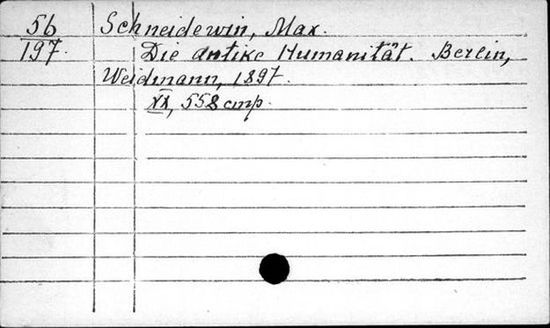 56 Schneidewin, Max.
197. Die antike Humanität. Berlin,
Weidmann, 1897.
XX, 558 стр.